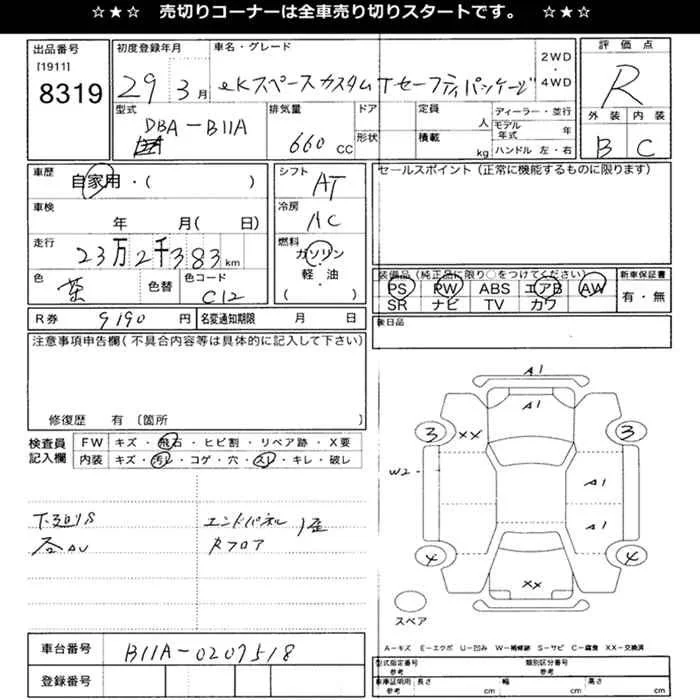 ☆★☆ 売切りコーナーは全車売り切りスタートです。 ☆★☆
出品番号 初度登録年月 車名・グレード 2WD・4WD 評価点
[1911]
8319 29 3月 eKスペースカスタムTセーフティパッケージ R
型式 排気量 ドア 定員 人 ディーラー・並行 外装 内装
DBA-B11A 660CC 形状 積載 kg モデル年式 年 B C
ハンドル 左・右
車歴 自家用・( ) シフト AT セールスポイント(正常に機能するものに限ります)
車検 年 月( 日) 冷房 AC
走行 23万2千383km 燃料 ガソリン・軽・油
( )
色 茶 色替 色コード C12
装備品(純正品に限り○をつけてください) 新車保証書
PS PW ABS エアB AW 有・無
SR ナビ TV カワ
R券 9190円 名変通知期限 月 日 後日品
注意事項申告欄(不具合内容等は具体的に記入して下さい)
修復歴 有〔箇所
検査員記入欄 FW キズ・飛石・ヒビ割・リペア跡・X要
内装 キズ・汚レ・コゲ・穴・スレ・キレ・破レ
下廻りS エンドパネル 歪
各AU Rフロア
A1
A1
3 XX 3
W2
A1
A1
4 4
XX
スペア
A−キズ E−エクボ U−凹み W−補修跡 S−サビ C−腐食 XX−交換済
車台番号 B11A-0207518
登録番号
型式指定番号 参考 類別区分番号 参考
車庫証明用 参考 長さ cm 幅 cm 高さ cm